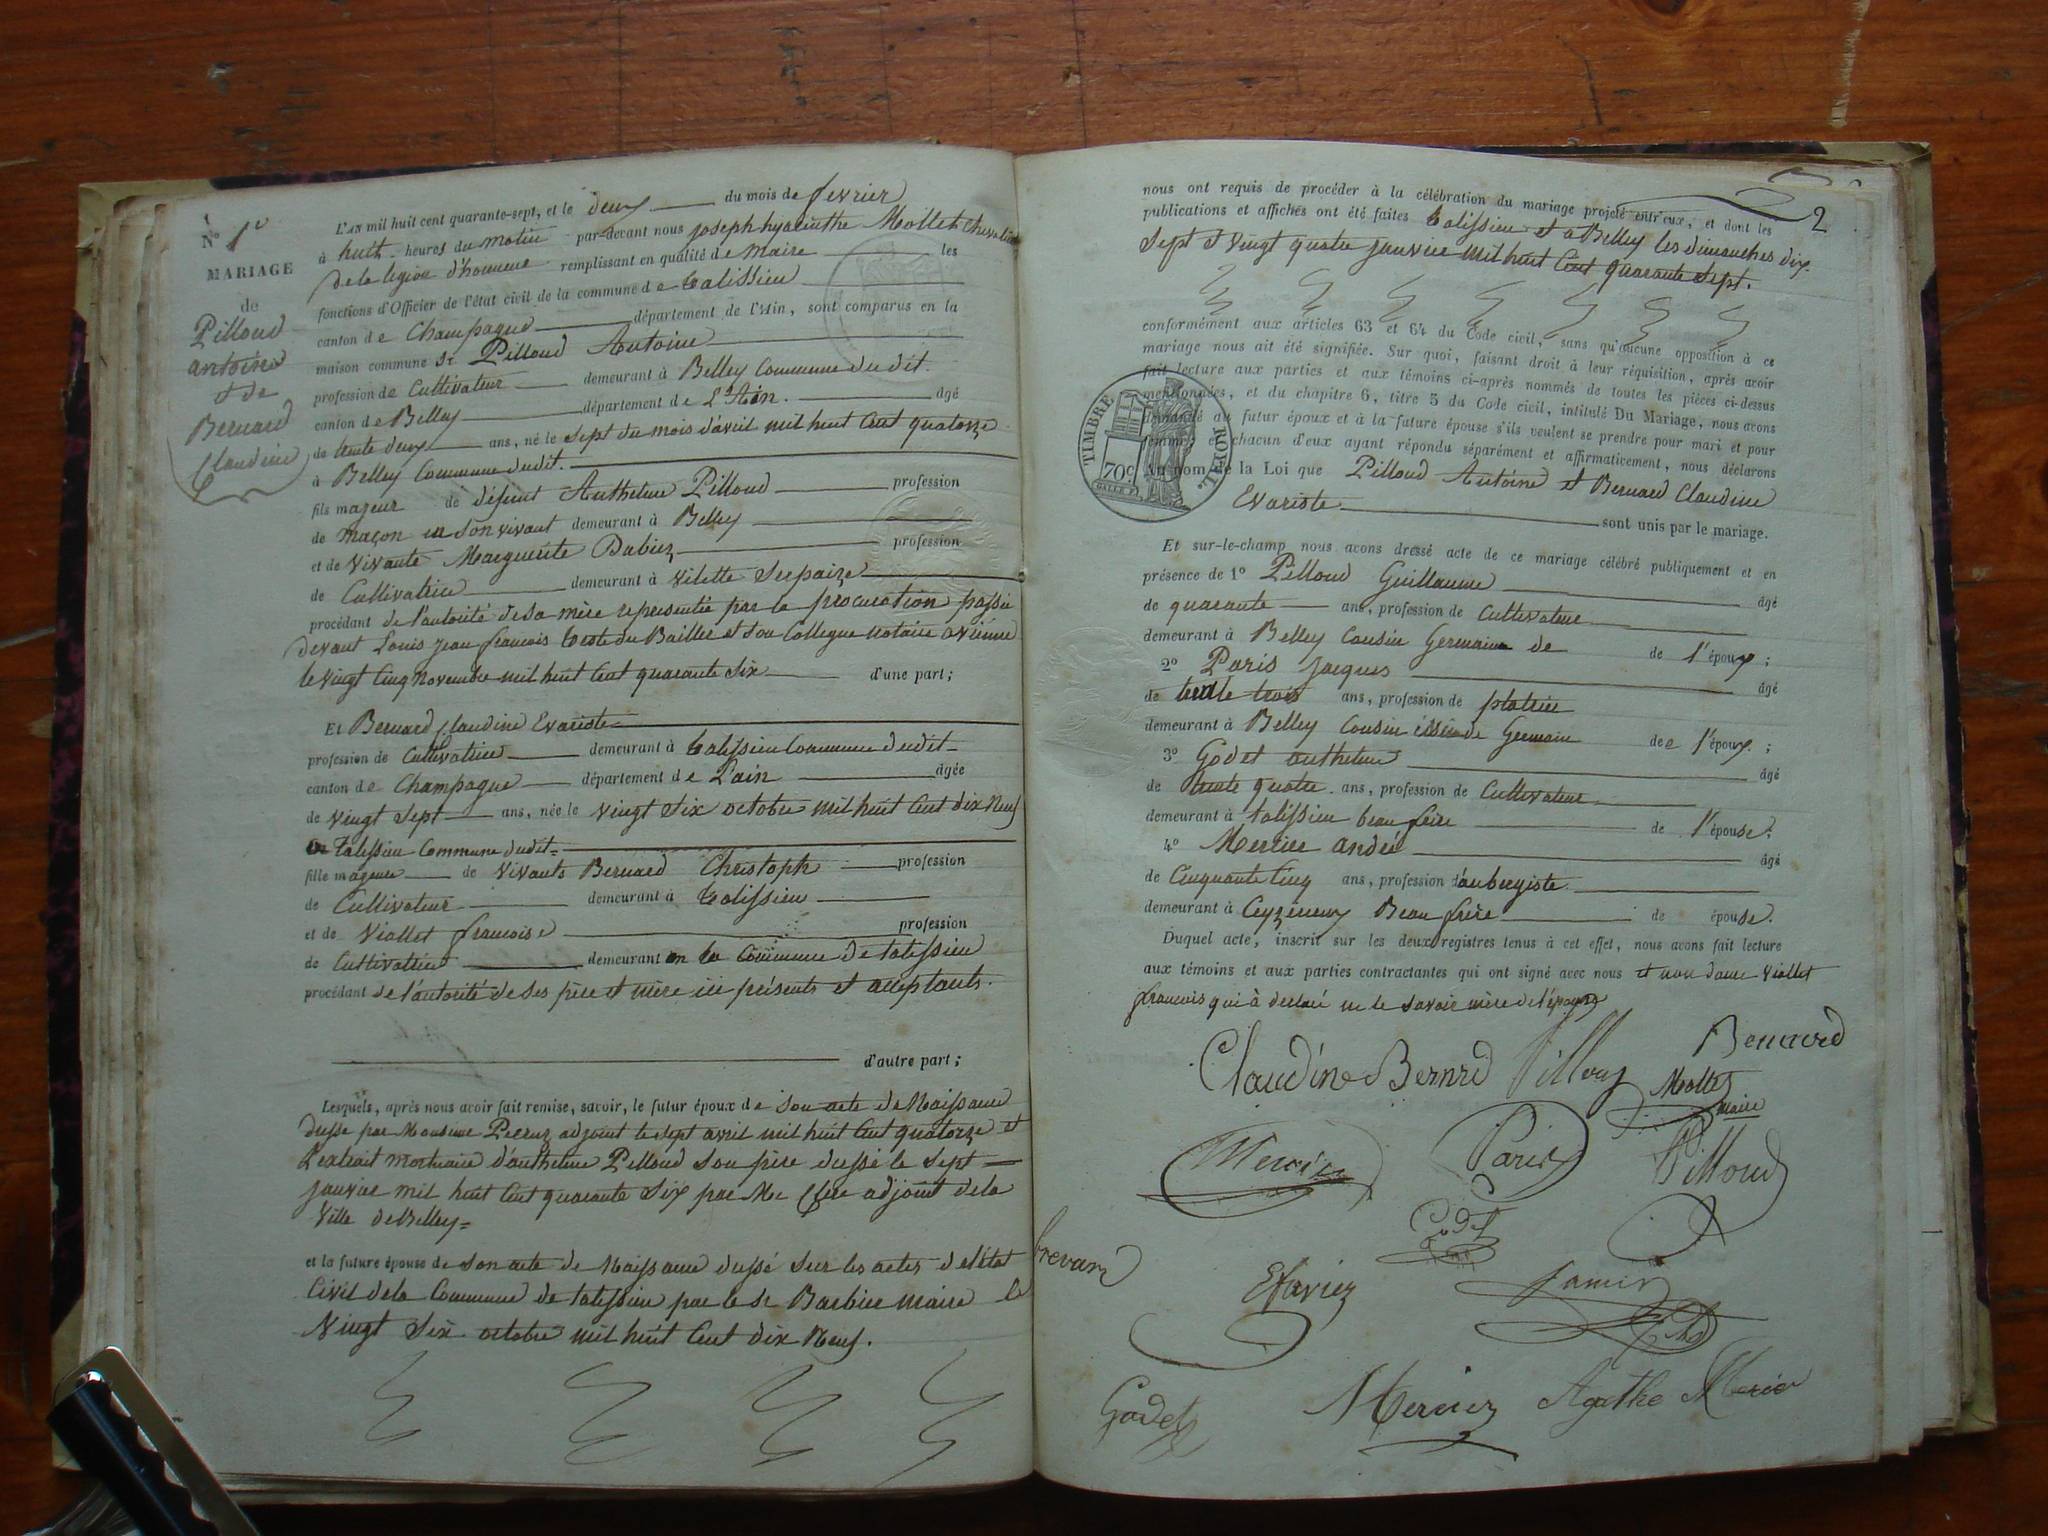 N° 1er
MARIAGE
de
Pilloud
antoine
et de
Bernard
Claudine
L'AN mil huit cent quarante-sept, et le deux du mois de fevrier
à huit heures du matin par-devant nous joseph hyacinthe Mollet chevalier
de la legion d'honneur remplissant en qualité de Maire les
fonctions d'Officier de l'état civil de la commune de talissieu
canton de Champagne département de l'Ain, sont comparus en la
maison commune sr Pilloud Antoine
profession de Cultivateur demeurant à Belley Commune dudit.
canton de Belley département de L'Ain. âgé
de trente deux ans, né le sept du mois d'avril mil huit Cent quatorze
à Belley Commune dudit.
fils majeur de défunt Anthelme Pilloud profession
de maçon en son vivant demeurant à Belley
et de vivante Marguerite Dubiez profession
de Cultivatrice demeurant à vilette Serpaize
procédant de l'autorité de sa mère representée par la procuration passée
devant Louis jean françois teste du Bailler et son Collegue notaire a vienne
le vingt Cinq Novembre mil huit Cent quarante Six d'une part;
Et Bernard Claudine Evariste
profession de Cultivatrice demeurant à talissieu Commune dudit
canton de Champagne département de L'ain âgée
de vingt sept ans, née le vingt Six octobre mil huit Cent dix Neuf
talissieu Commune dudit
fille majeure de vivants Bernard Christoph profession
de Cultivateur demeurant à talissieu
et de Viollet françoise profession
de Cultivatrice demeurant en la Commune de talissieu
procédant de l'autorité de ses père et mère ici présents et acceptants.
d'autre part;
Lesquels, après nous avoir fait remise, savoir, le futur époux de son acte de Naissance
dressé par Monsieur Peeruz adjoint le sept avril mil huit Cent quatorze et
L'extrait mortuaire d'anthelme Pilloud son père dressé le sept
janvier mil huit Cent quarante Six par Mr adjoint de la
Ville de Belley
et la future épouse de son acte de Naissance dressé sur les actes de l'état
Civil de la Commune de talissieu par le sr Barbier maire le
Vingt Six octobre mil huit Cent dix Neuf.
2
nous ont requis de procéder à la célébration du mariage projeté entr'eux, et dont les
publications et affiches ont été faites talissieu et a Belley les dimanches dix
sept et vingt quatre janvier mil huit Cent quarante sept.
conformément aux articles 63 et 64 du Code civil, sans qu'aucune opposition à ce
mariage nous ait été signifiée. Sur quoi, faisant droit à leur réquisition, après avoir
fait lecture aux parties et aux témoins ci-après nommés de toutes les pièces ci-dessus
mentionnées, et du chapitre 6, titre 5 du Code civil, intitulé Du Mariage, nous avons
demandé au futur époux et à la future épouse s'ils veulent se prendre pour mari et pour
femme; et chacun d'eux ayant répondu séparément et affirmativement, nous déclarons
Au nom de la Loi que Pilloud Antoine et Bernard Claudine
Evariste sont unis par le mariage.
TIMBRE ROYAL
70c
Et sur-le-champ nous avons dressé acte de ce mariage célébré publiquement et en
présence de 1° Pilloud Guillaume âgé
de quarante ans, profession de Cultivateur
demeurant à Belley Cousin Germain de de l'époux;
2° Paris jacques âgé
de trente trois ans, profession de platrier
demeurant à Belley Cousin issu de Germain de l'époux;
3° Godet anthelme âgé
de trente quatre ans, profession de Cultivateur
demeurant à talissieu beau frère de l'épouse;
4° Mercier andré âgé
de Cinquante Cinq ans, profession d'aubergiste
demeurant à Ceyzerieux Beau frère de épouse.
Duquel acte, inscrit sur les deux registres tenus à cet effet, nous avons fait lecture
aux témoins et aux parties contractantes qui ont signé avec nous et non dame Viollet
françois qui à déclaré ne le savoir mère de l'épouse
Claudine Bernrd Pilloud Bernard
Mollet
maire
Mercier Paris Pilloud
Godet
Godet Mercier Agathe Mercier